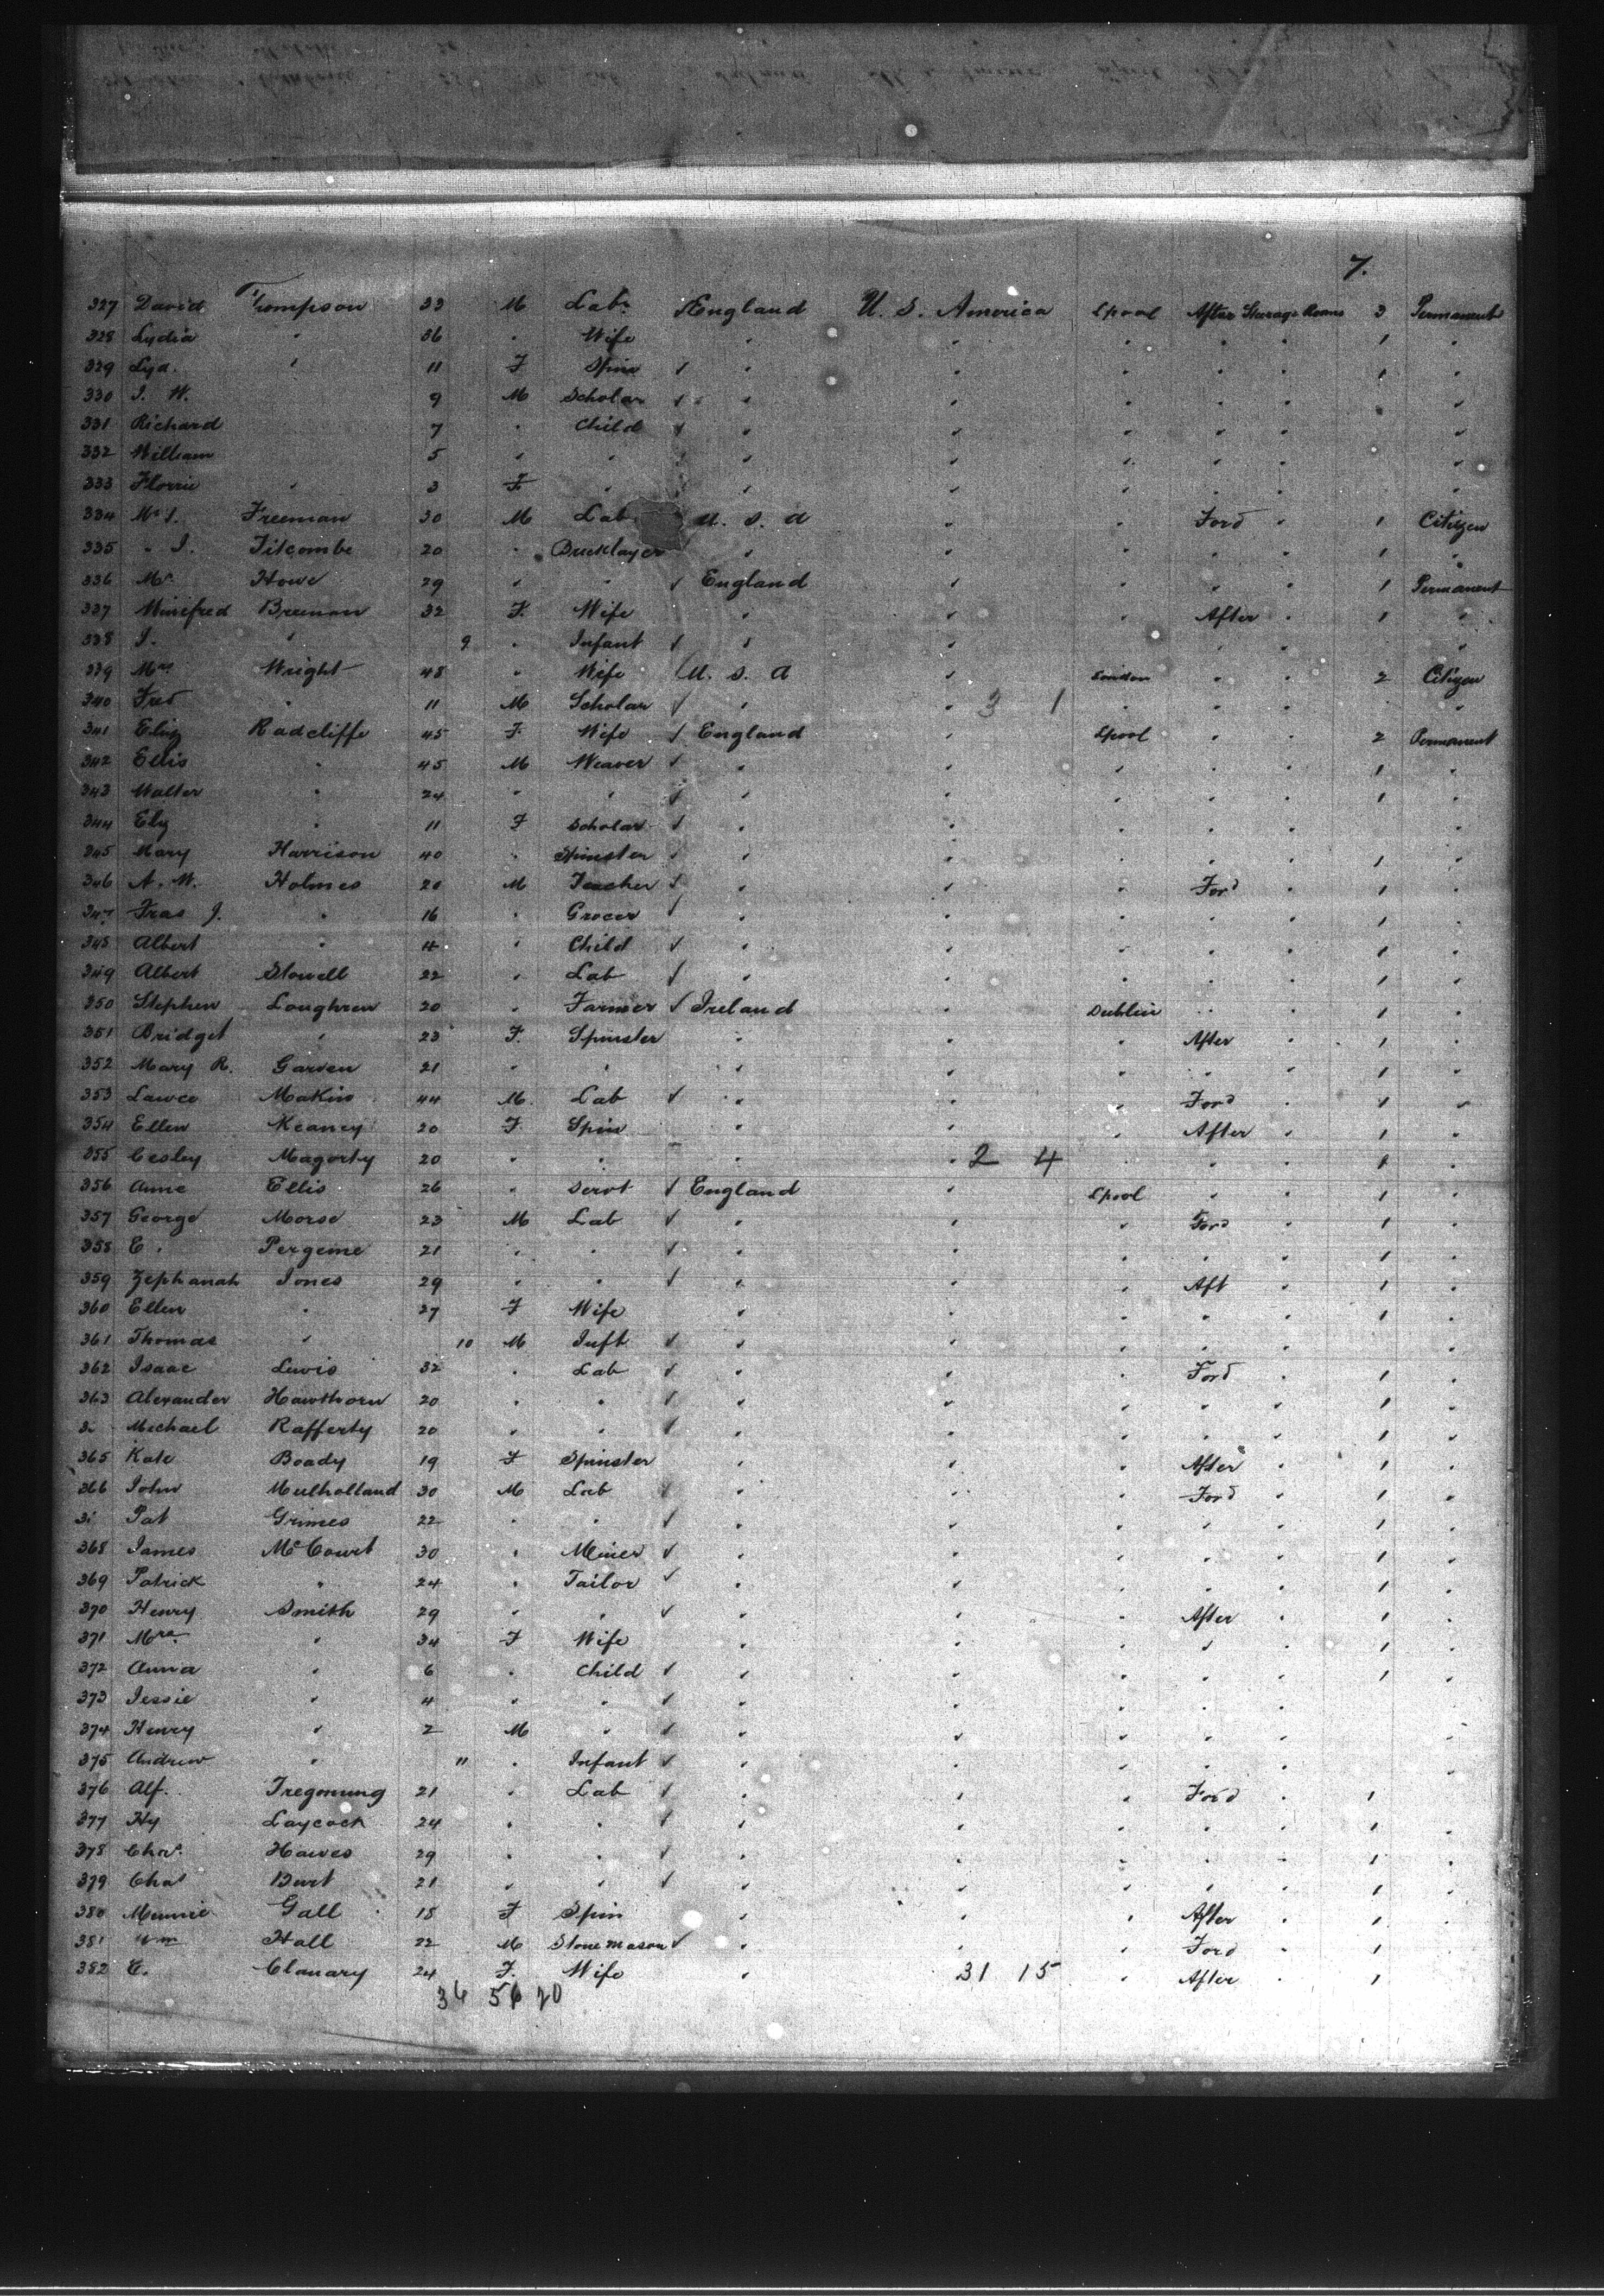 7.
327 David Thompson 33 M Labr England U. S. America Lpool After Steerage Rooms 3 Permanent
328 Lydia " 36 " Wife " " " " " 1 "
329 Lya. " 11 F Spin ✓ " " " " " 1 "
330 J. W. 9 M Scholar ✓ " " " " " "
331 Richard 7 " Child ✓ " " " " " "
332 William 5 " " " " " " " "
333 Florrie " 3 F " " " " " " "
334 Mr J. Freeman 30 M Lab U. S. A " " Ford " 1 Citizen
335 " J. Titcombe 20 " Bricklayer " " " " " 1 "
336 Mr Howe 29 " " ✓ England " " " " 1 Permanent
337 Winifred Brennan 32 F. Wife " " " After " 1 "
338 J. " 9 " Infant ✓ " " " " " "
339 Mrs Wright 48 " Wife U. S. A " London " " 2 Citizen
340 Fred " 11 M Scholar ✓ " " 3 1 " " " "
341 Eliz Radcliffe 45 F Wife ✓ England " Lpool " " 2 Permanent
342 Ellis " 45 M Weaver ✓ " " " " " 1 "
343 Walter " 24 " " ✓ " " " " " 1 "
344 Eliz " 11 F Scholar ✓ " " " " " "
345 Mary Harrison 40 " Spinster ✓ " " " " " 1 "
346 A. W. Holmes 20 M Teacher ✓ " " " Ford " 1 "
347 Fras J. " 16 " Grocer ✓ " " " " " 1 "
348 Albert " 4 " Child ✓ " " " " " 1 "
349 Albert Stowell 22 " Lab ✓ " " " " " 1 "
350 Stephen Loughren 20 " Farmer ✓ Ireland " Dublin " " 1 "
351 Bridget " 23 F. Spinster " " " After " 1 "
352 Mary R. Garven 21 " " " " " " " 1 "
353 Lawce Makin 44 M. Lab ✓ " " " Ford " 1 "
354 Ellen Keaney 20 F Spin " " " After " 1 "
355 Cesley Magorty 20 " " " " 2 4 " " " 1 "
356 Anne Ellis 26 " Servt ✓ England " Lpool " " 1 "
357 George Morse 23 M Lab ✓ " " " Ford " 1 "
358 E. Pergeine 21 " " ✓ " " " " " 1 "
359 Zephanah Jones 29 " " ✓ " " " Aft " 1 "
360 Ellen " 27 F Wife " " " " " 1 "
361 Thomas " 10 M Inft ✓ " " " " " "
362 Isaac Lewis 32 " Lab ✓ " " " Ford " 1 "
363 Alexander Hawthorn 20 " " ✓ " " " " " 1 "
3 Michael Rafferty 20 " " ✓ " " " " " 1 "
365 Kate Boady 19 F Spinster " " " After " 1 "
366 John Mulholland 30 M Lab ✓ " " " Ford " 1 "
3 Pat Grimes 22 " " ✓ " " " " " 1 "
368 James McCourt 30 " Miner ✓ " " " " " 1 "
369 Patrick " 24 " Tailor ✓ " " " " " 1 "
370 Henry Smith 29 " " ✓ " " " After " 1 "
371 Mrs " 34 F Wife " " " " " 1 "
372 Anna " 6 " Child ✓ " " " " " 1 "
373 Jessie " 4 " " ✓ " " " " " "
374 Henry " 2 M " ✓ " " " " " "
375 Andrew " 11 " Infant ✓ " " " " " "
376 Alf. Tregonning 21 " Lab ✓ " " " Ford " 1 "
377 Hy Laycock 24 " " ✓ " " " " " 1 "
378 Chas. Hawes 29 " " ✓ " " " " " 1 "
379 Chas Burt 21 " " ✓ " " " " " 1 "
380 Minnie Gall 18 F Spin " " " After " 1 "
381 Wm Hall 22 M Stone Mason ✓ " " " Ford " 1 "
382 E. Clanary 24 F. Wife " 31 15 " After " 1
36 56 20